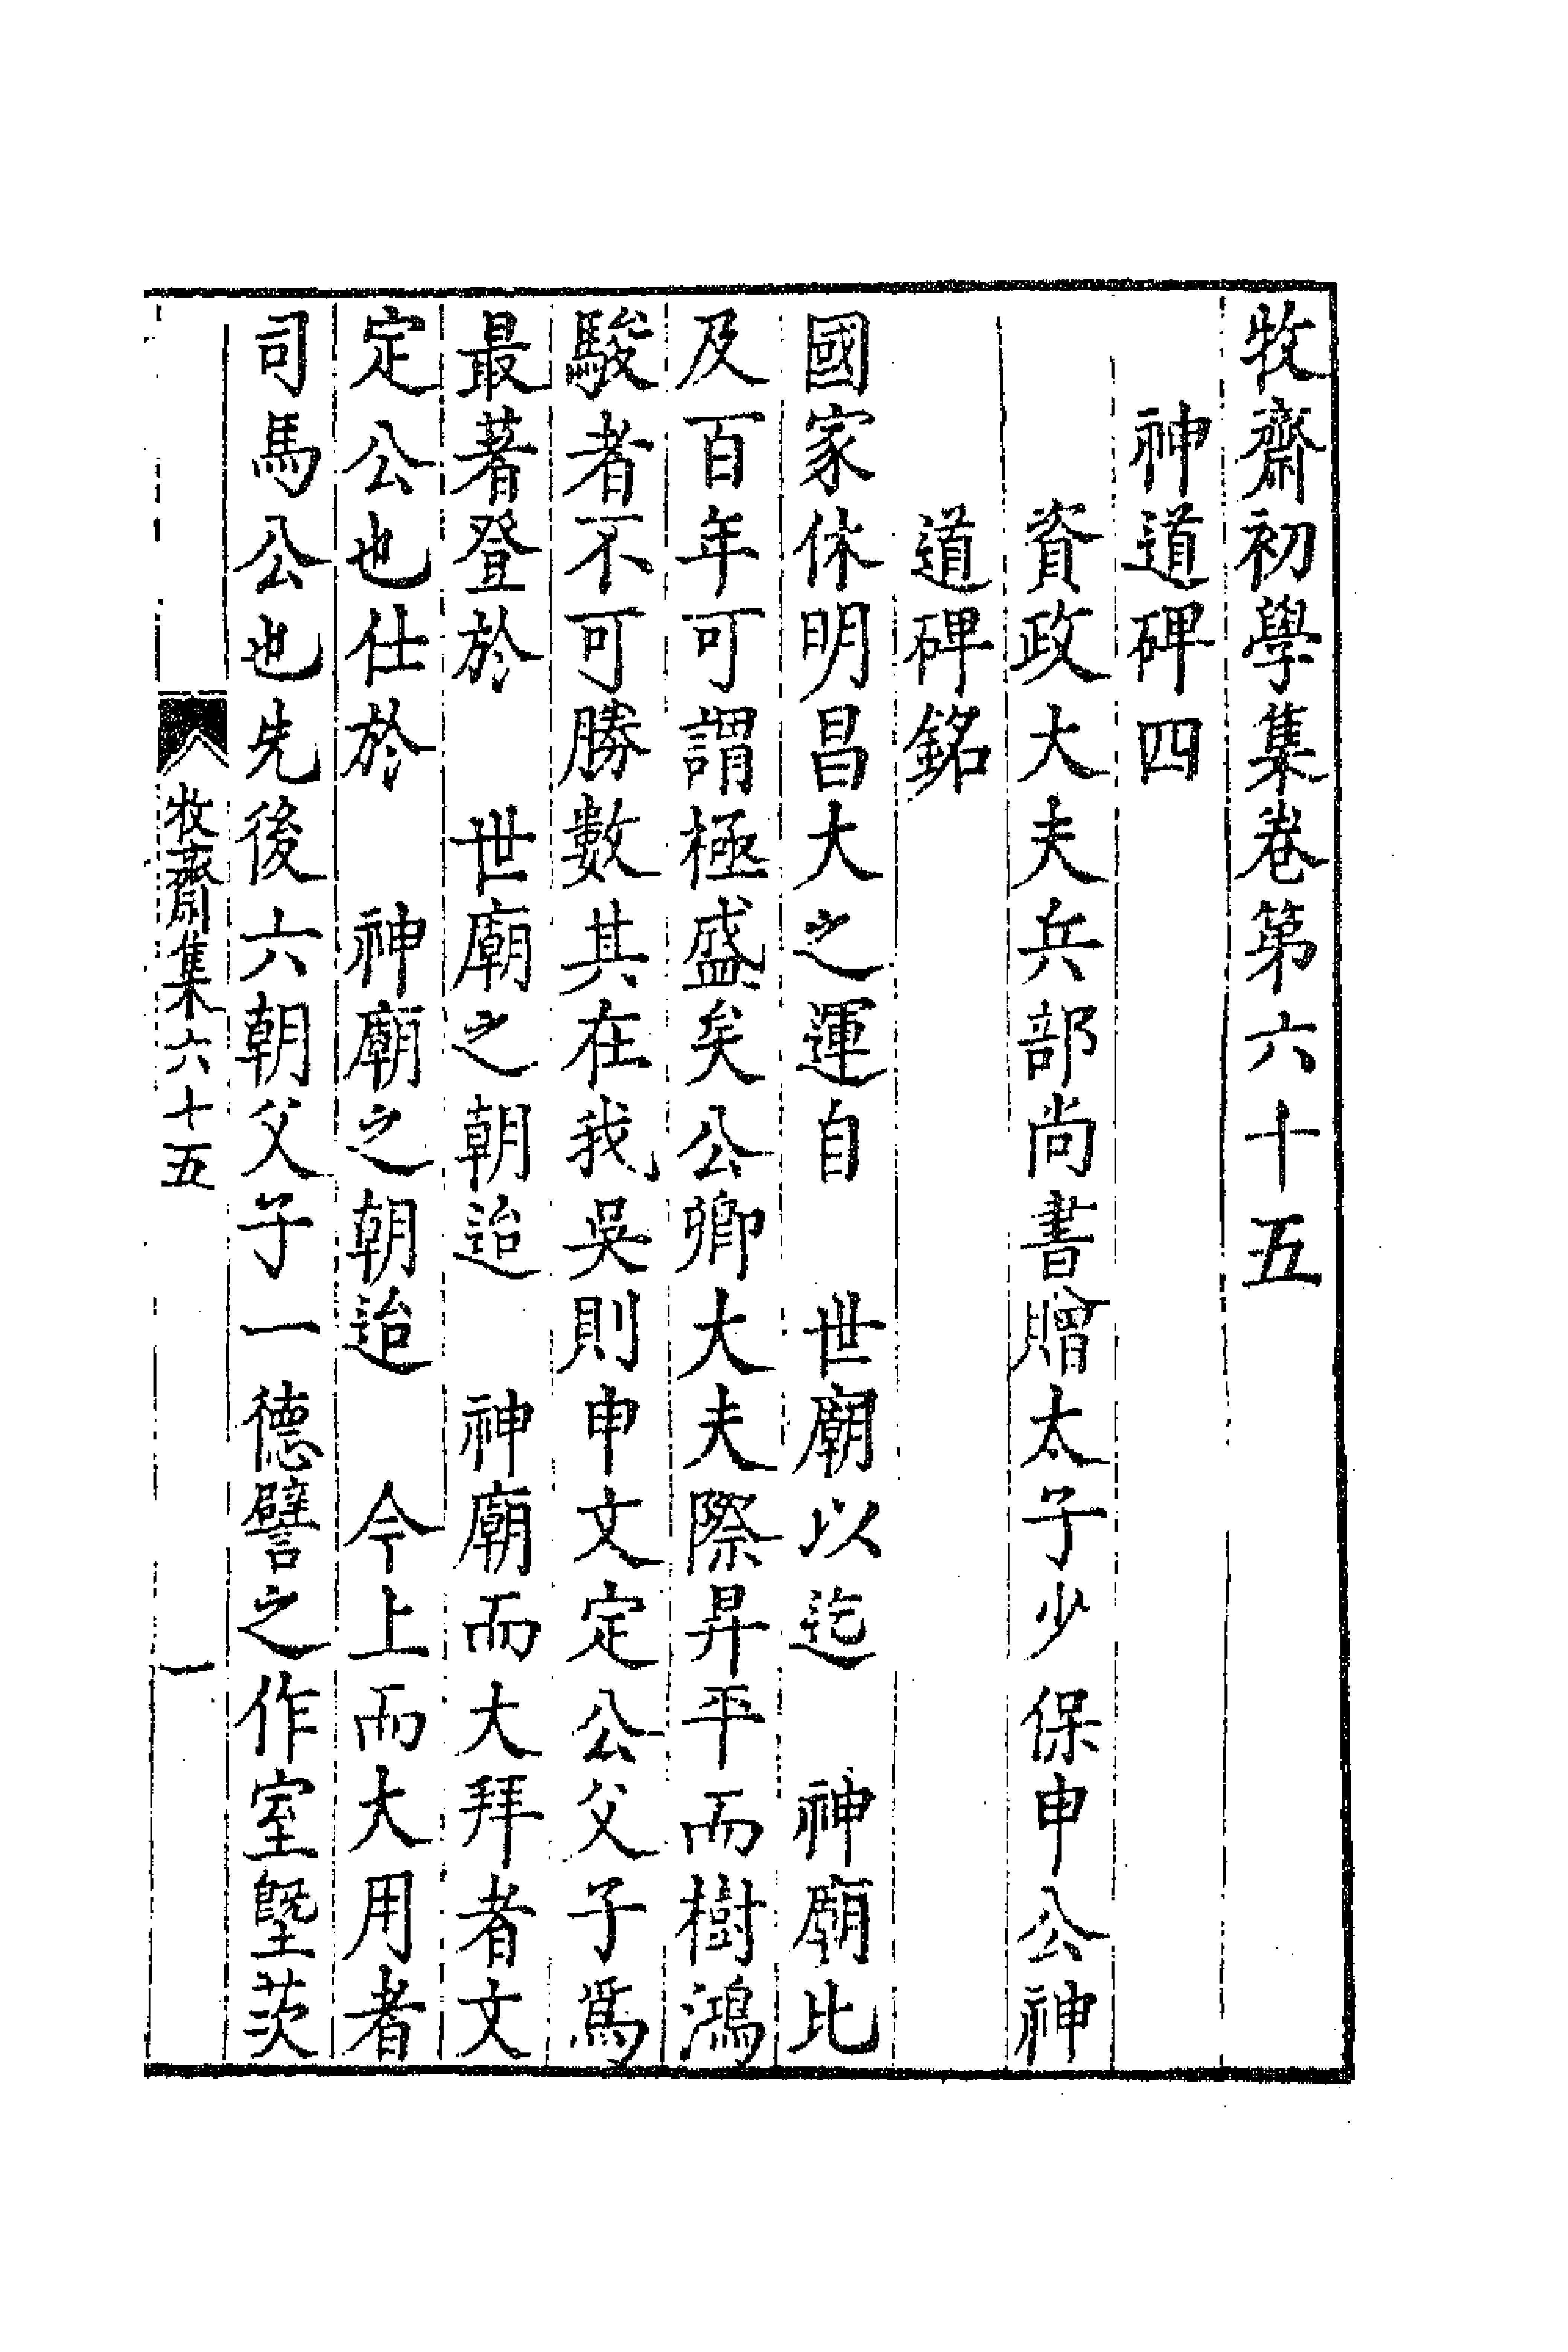 牧齋初學集卷第六十五
神道碑四
資政大夫兵部尚書贈太子少保申公神
道碑銘
國家休明昌大之運自　世廟以迄　神廟比
及百年可謂極盛矣公卿大夫際昇平而樹鴻
駿者不可勝數其在我吳則申文定公父子爲
最著登於　世廟之朝迨　神廟而大拜者文
定公也仕於　神廟之朝迨　今上而大用者
司馬公也先後六朝父子一德譬之作室墍茨
牧齋集六十五　一